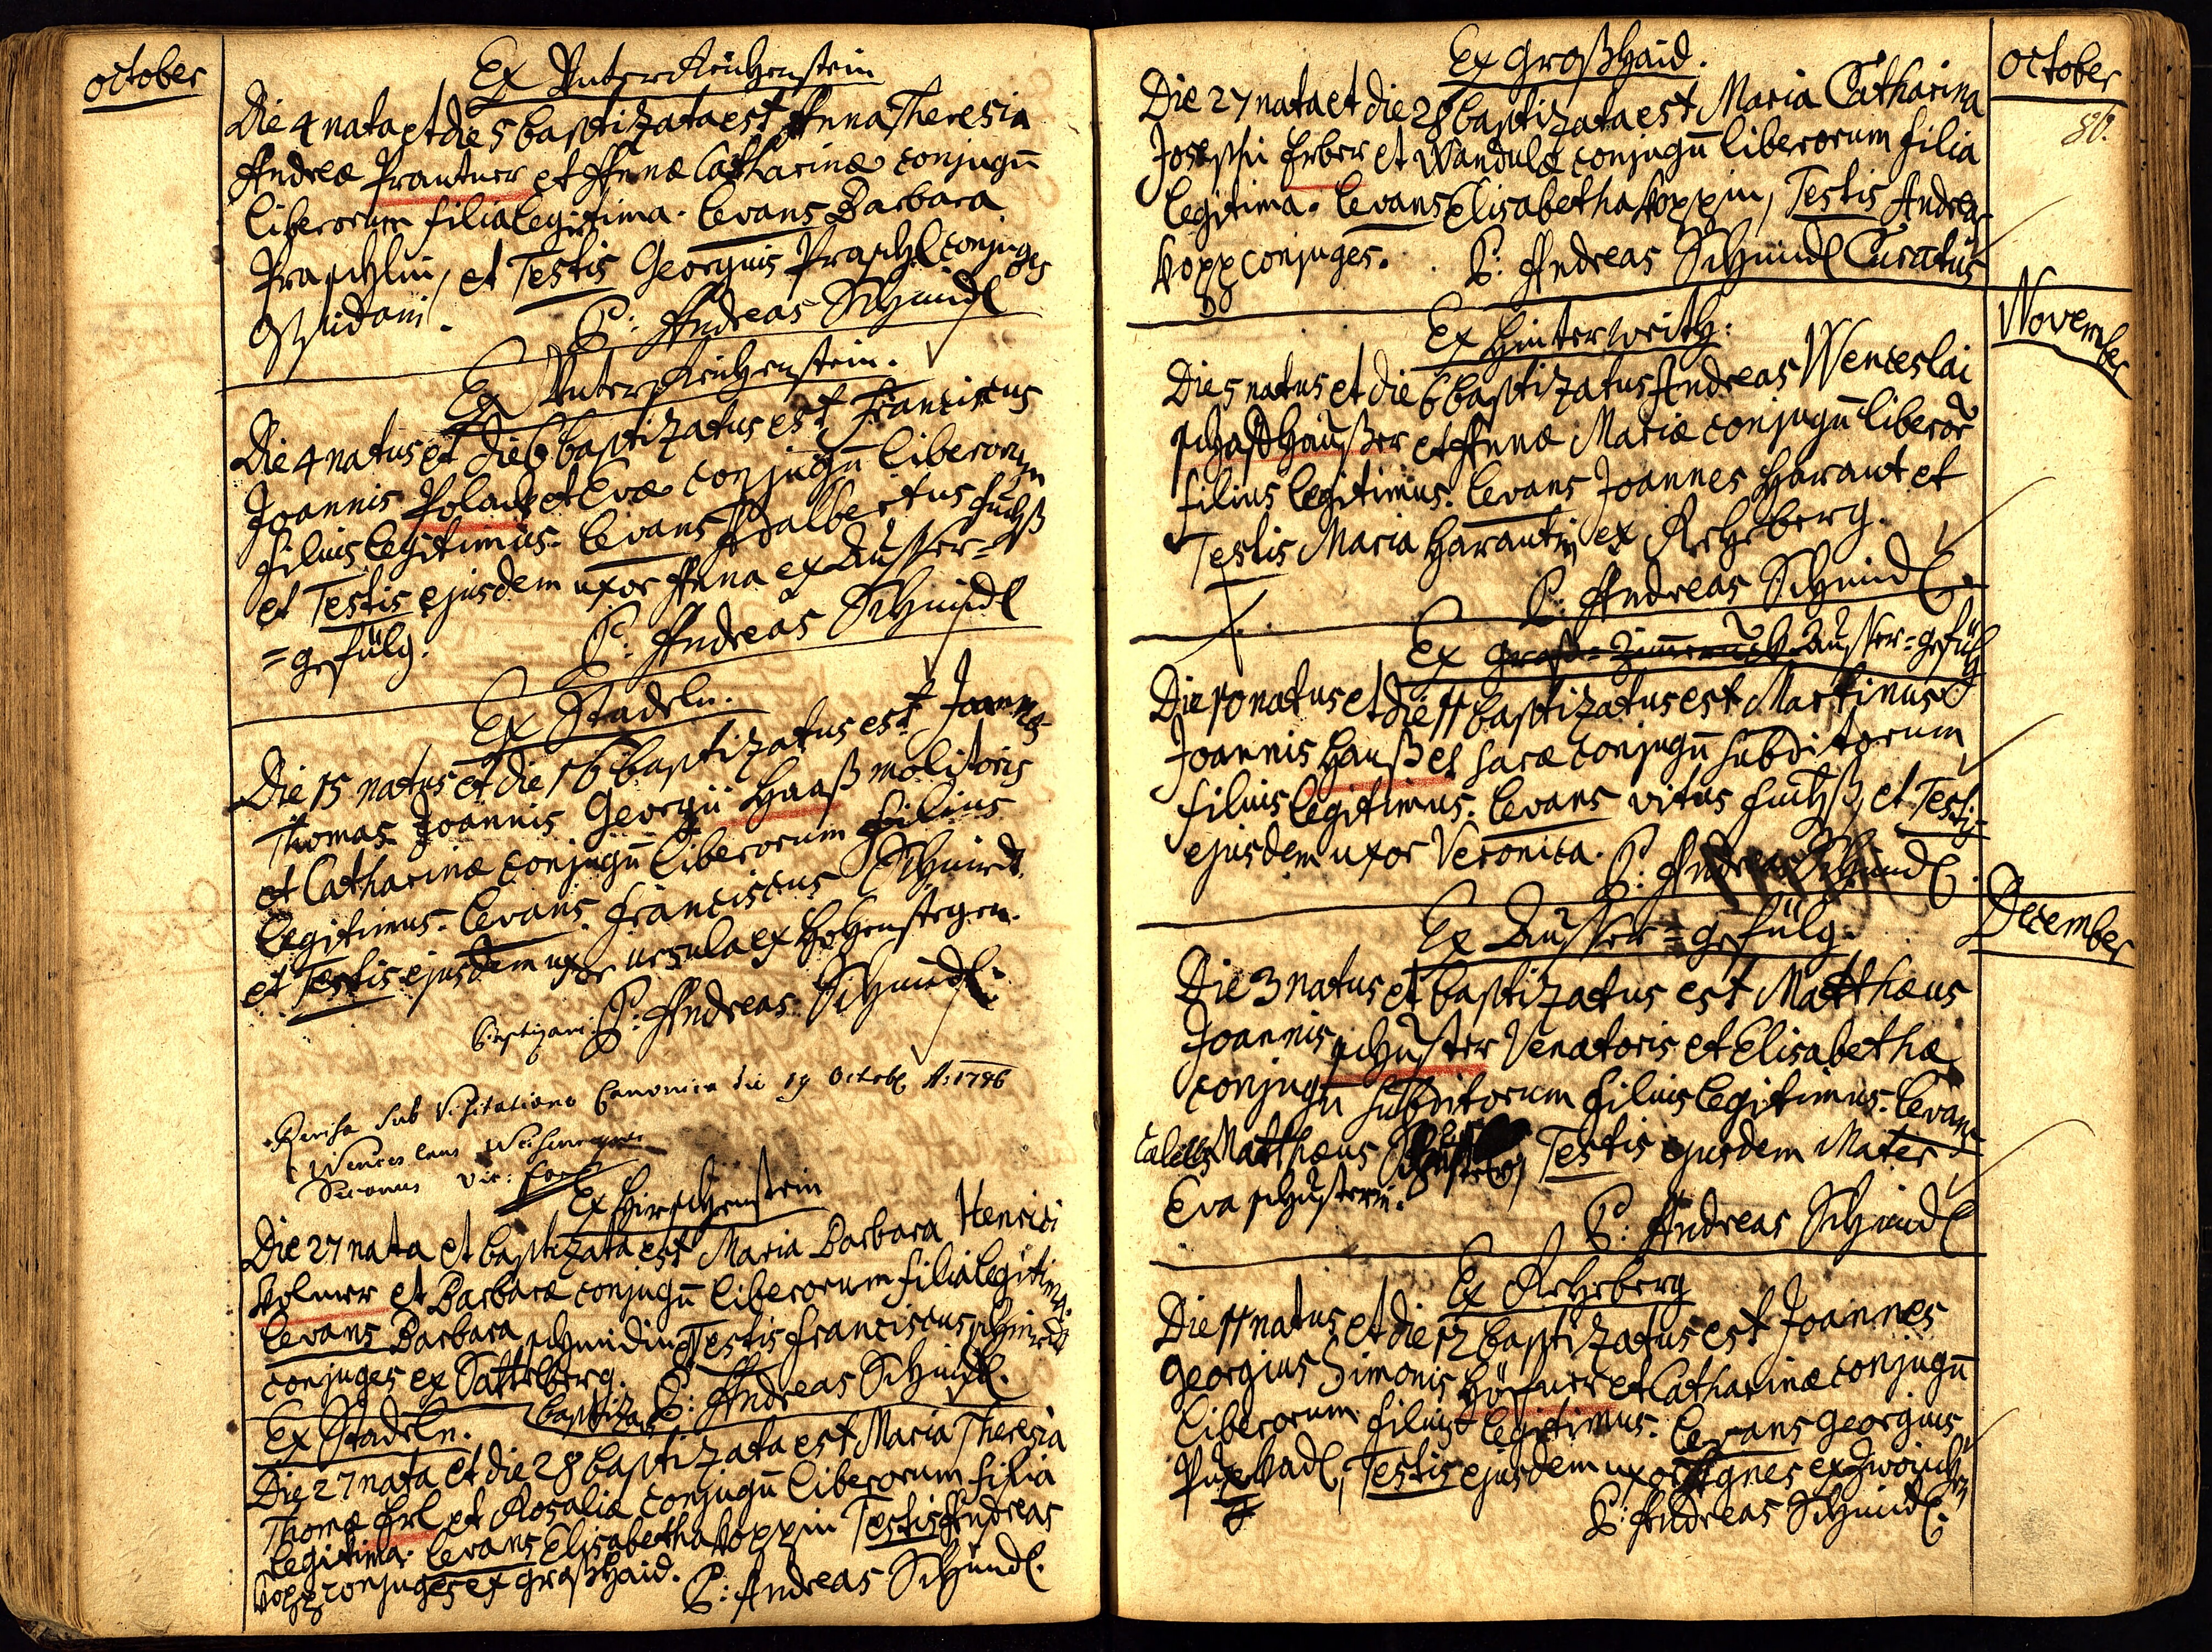 October
Ex Unterreichenstein
Die 4 nata et die 5 baptizata est Anna Theresia
Andreæ Prantner et Annæ Catharinæ conjugū
liberorum filia legitima. Levans Barbara
Praschlin, et Testis Georgius Praschl conjuges
P: Andreas Schmidl
Ex Unterreichenstein.
Die 4 natus et die 6 baptizatus est Franciscus
Joannis Polack et Evæ conjugū liberorum
filius legitimus. Levans Adalbertus Fuchß
et Testis ejusdem uxor Anna ex Ausser=
=gefülg.
P: Andreas Schmidl
Ex Stadeln.
Die 15 natus et die 16 baptizatus est Joannes
Thomas Joannis Georgii Haaß molitoris
et Catharinæ conjugū liberorum filius
legitimus. Levans Franciscus Schmidt
et Testis ejusdem uxor Ursula ex Hohenstegen.
P: Andreas Schmidl.
Revisa sub Visitatione Canonica die 19 Octobr A: 1786
Wenceslaus
Vic: For:
Ex Hirschenstein
Die 27 nata et baptizata est Maria Barbara Henrici
Volmer et Barbaræ conjugū liberorum filia legitima.
Levans Barbara Schmidin Testis Franciscus Schmidt
conjuges ex Sattelberg.
P: Andreas Schmidl.
Ex Stadeln.
Die 27 nata et die 28 baptizata est Maria Theresia
Thomæ Erl et Rosaliæ conjugū liberorum filia
legitima. Levans Elisabetha Koppin Testis Andreas
Kopp conjuges ex Großhaid.
P: Andreas Schmidl.
October
86.
Ex Großhaid.
Die 27 nata et die 28 baptizata est Maria Catharina
Josephi Erber et Wandulæ conjugū liberorum filia
legitima. Levans Elisabetha Koppin, Testis Andreas
Kopp conjuges.
P: Andreas Schmidl Curatus
November
Ex Hinterwrith:
Die 5 natus et die 6 baptizatus Andreas Wenceslai
Schaffhaußer et Annæ Mariæ conjugū liberor
filius legitimus. Levans Joannes Harant et
Testis Maria Harantin ex Rehberg.
P: Andreas Schmidl.
Ex Ausser=gefülg
Die 10 natus et die 11 baptizatus est Martinus
Joannis Hanß et Saræ conjugū subditorum
filius legitimus. Levans Vitus Fuchß, et Testis
ejusdem uxor Veronica.
P: Andreas Schmidl.
December
Ex Ausser=gefülg.
Die 3 natus et baptizatus est Matthæus
Joannis Schuster Venatoris et Elisabethæ
conjugū subditorum filius legitimus. Levans
Cælebs Matthæus Schuster, Testis ejusdem Mater
Eva Schusterin.
P: Andreas Schmidl
Ex Rehberg
Die 11 natus et die 12 baptizatus est Joannes
Georgius Simonis Höfner et Catharinæ conjugū
liberorum filius legitimus. Levans Georgius
Testis ejusdem uxor Agnes ex
P: Andreas Schmidl.